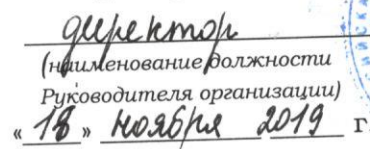 директор
(наименование должности
Руководителя организации)
« 18 » ноября 2019 г.